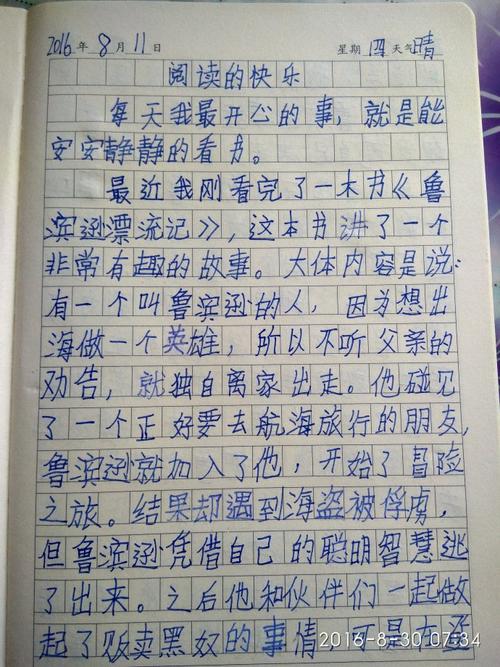 2016年 8月11日 星期四 天气晴
阅读的快乐
每天我最开心的事，就是能
安安静静的看书。
最近我刚看完了一本书《鲁
滨逊漂流记》，这本书讲了一个
非常有趣的故事。大体内容是说：
有一个叫鲁滨逊的人，因为想出
海做一个英雄，所以不听父亲的
劝告，就独自离家出走。他碰见
了一个正好要去航海旅行的朋友，
鲁滨逊就加入了他，开始了冒险
之旅。结果却遇到海盗被俘虏，
但鲁滨逊凭借自己的聪明智慧逃
了出来。之后他和伙伴们一起做
起了贩卖黑奴的事情，可是在
2016-8-30 07:34